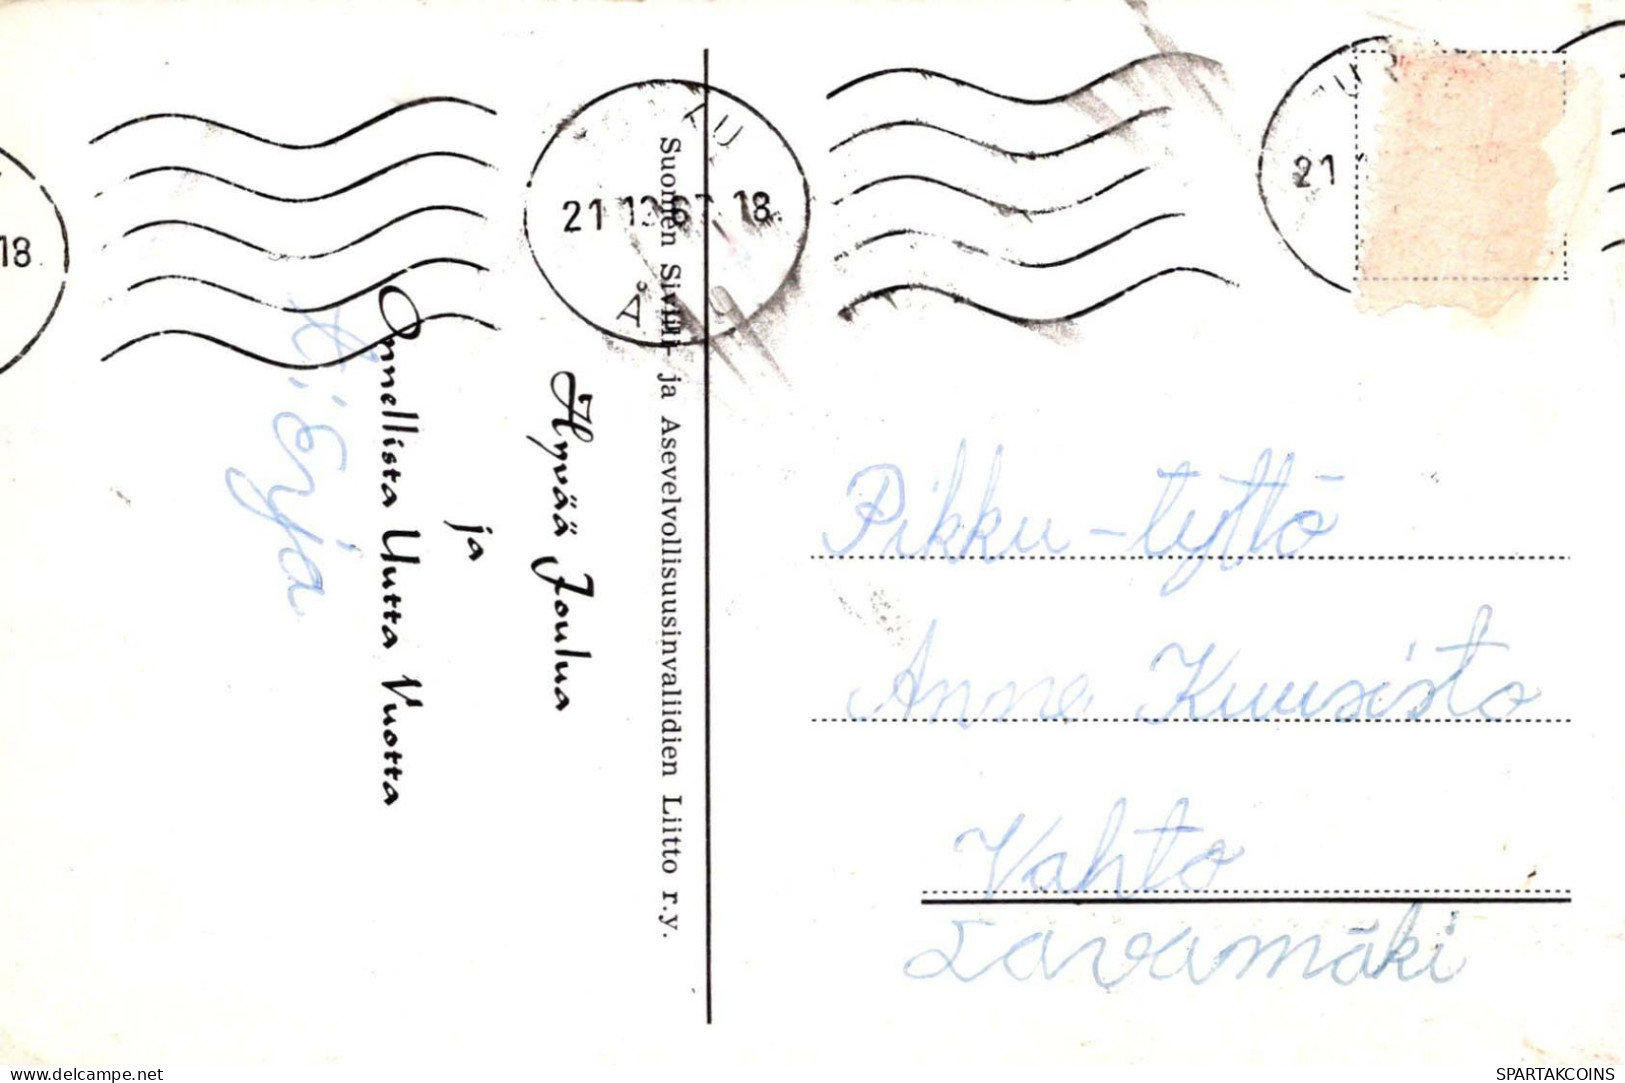 18
21 12.67. 18
Å
TU
21
TUR
Suomen Siviili- ja Asevelvollisuusinvaliidien Liitto r.y.
Hyvää Joulua
ja
Onnellista Uutta Vuotta
t: Erja
Pikku-tyttö
Anne Kuusisto
Vahto
Lavamäki
delcampe.net
SPARTAKCOINS